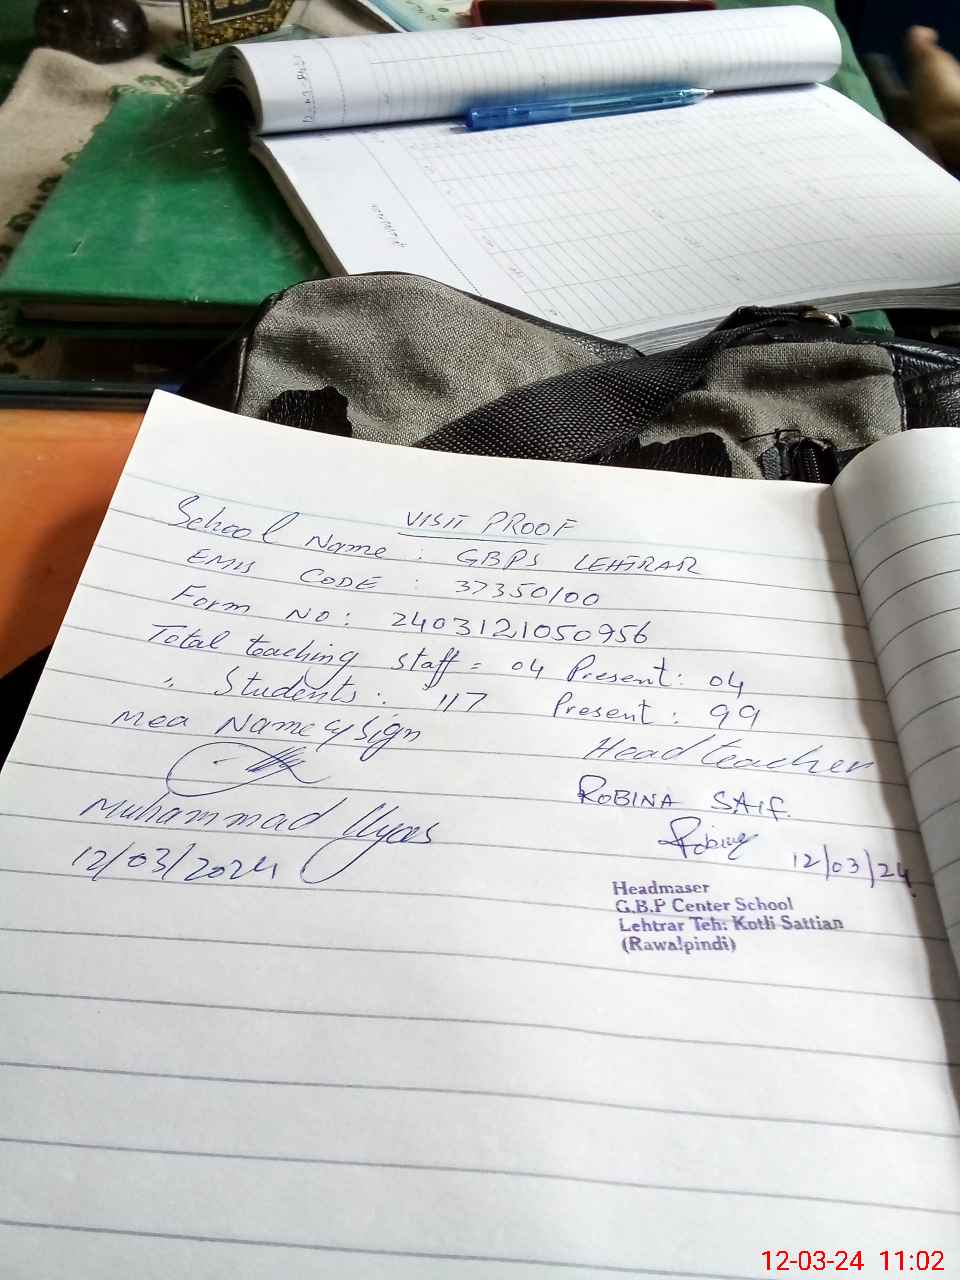 VISIT PROOF
School Name : GBPS LEHTRAR
EMIS CODE : 37350100
Form NO: 2403121050956
Total teaching staff = 04 Present: 04
" Students: 117 Present: 99
Mea Name & Sign
Head teacher
ROBINA SAIF.
Muhammad Ilyas
Robina 12/03/24
12/03/2024
Headmaser
G.B.P Center School
Lehtrar Teh: Kotli Sattian
(Rawalpindi)
12-03-24 11:02